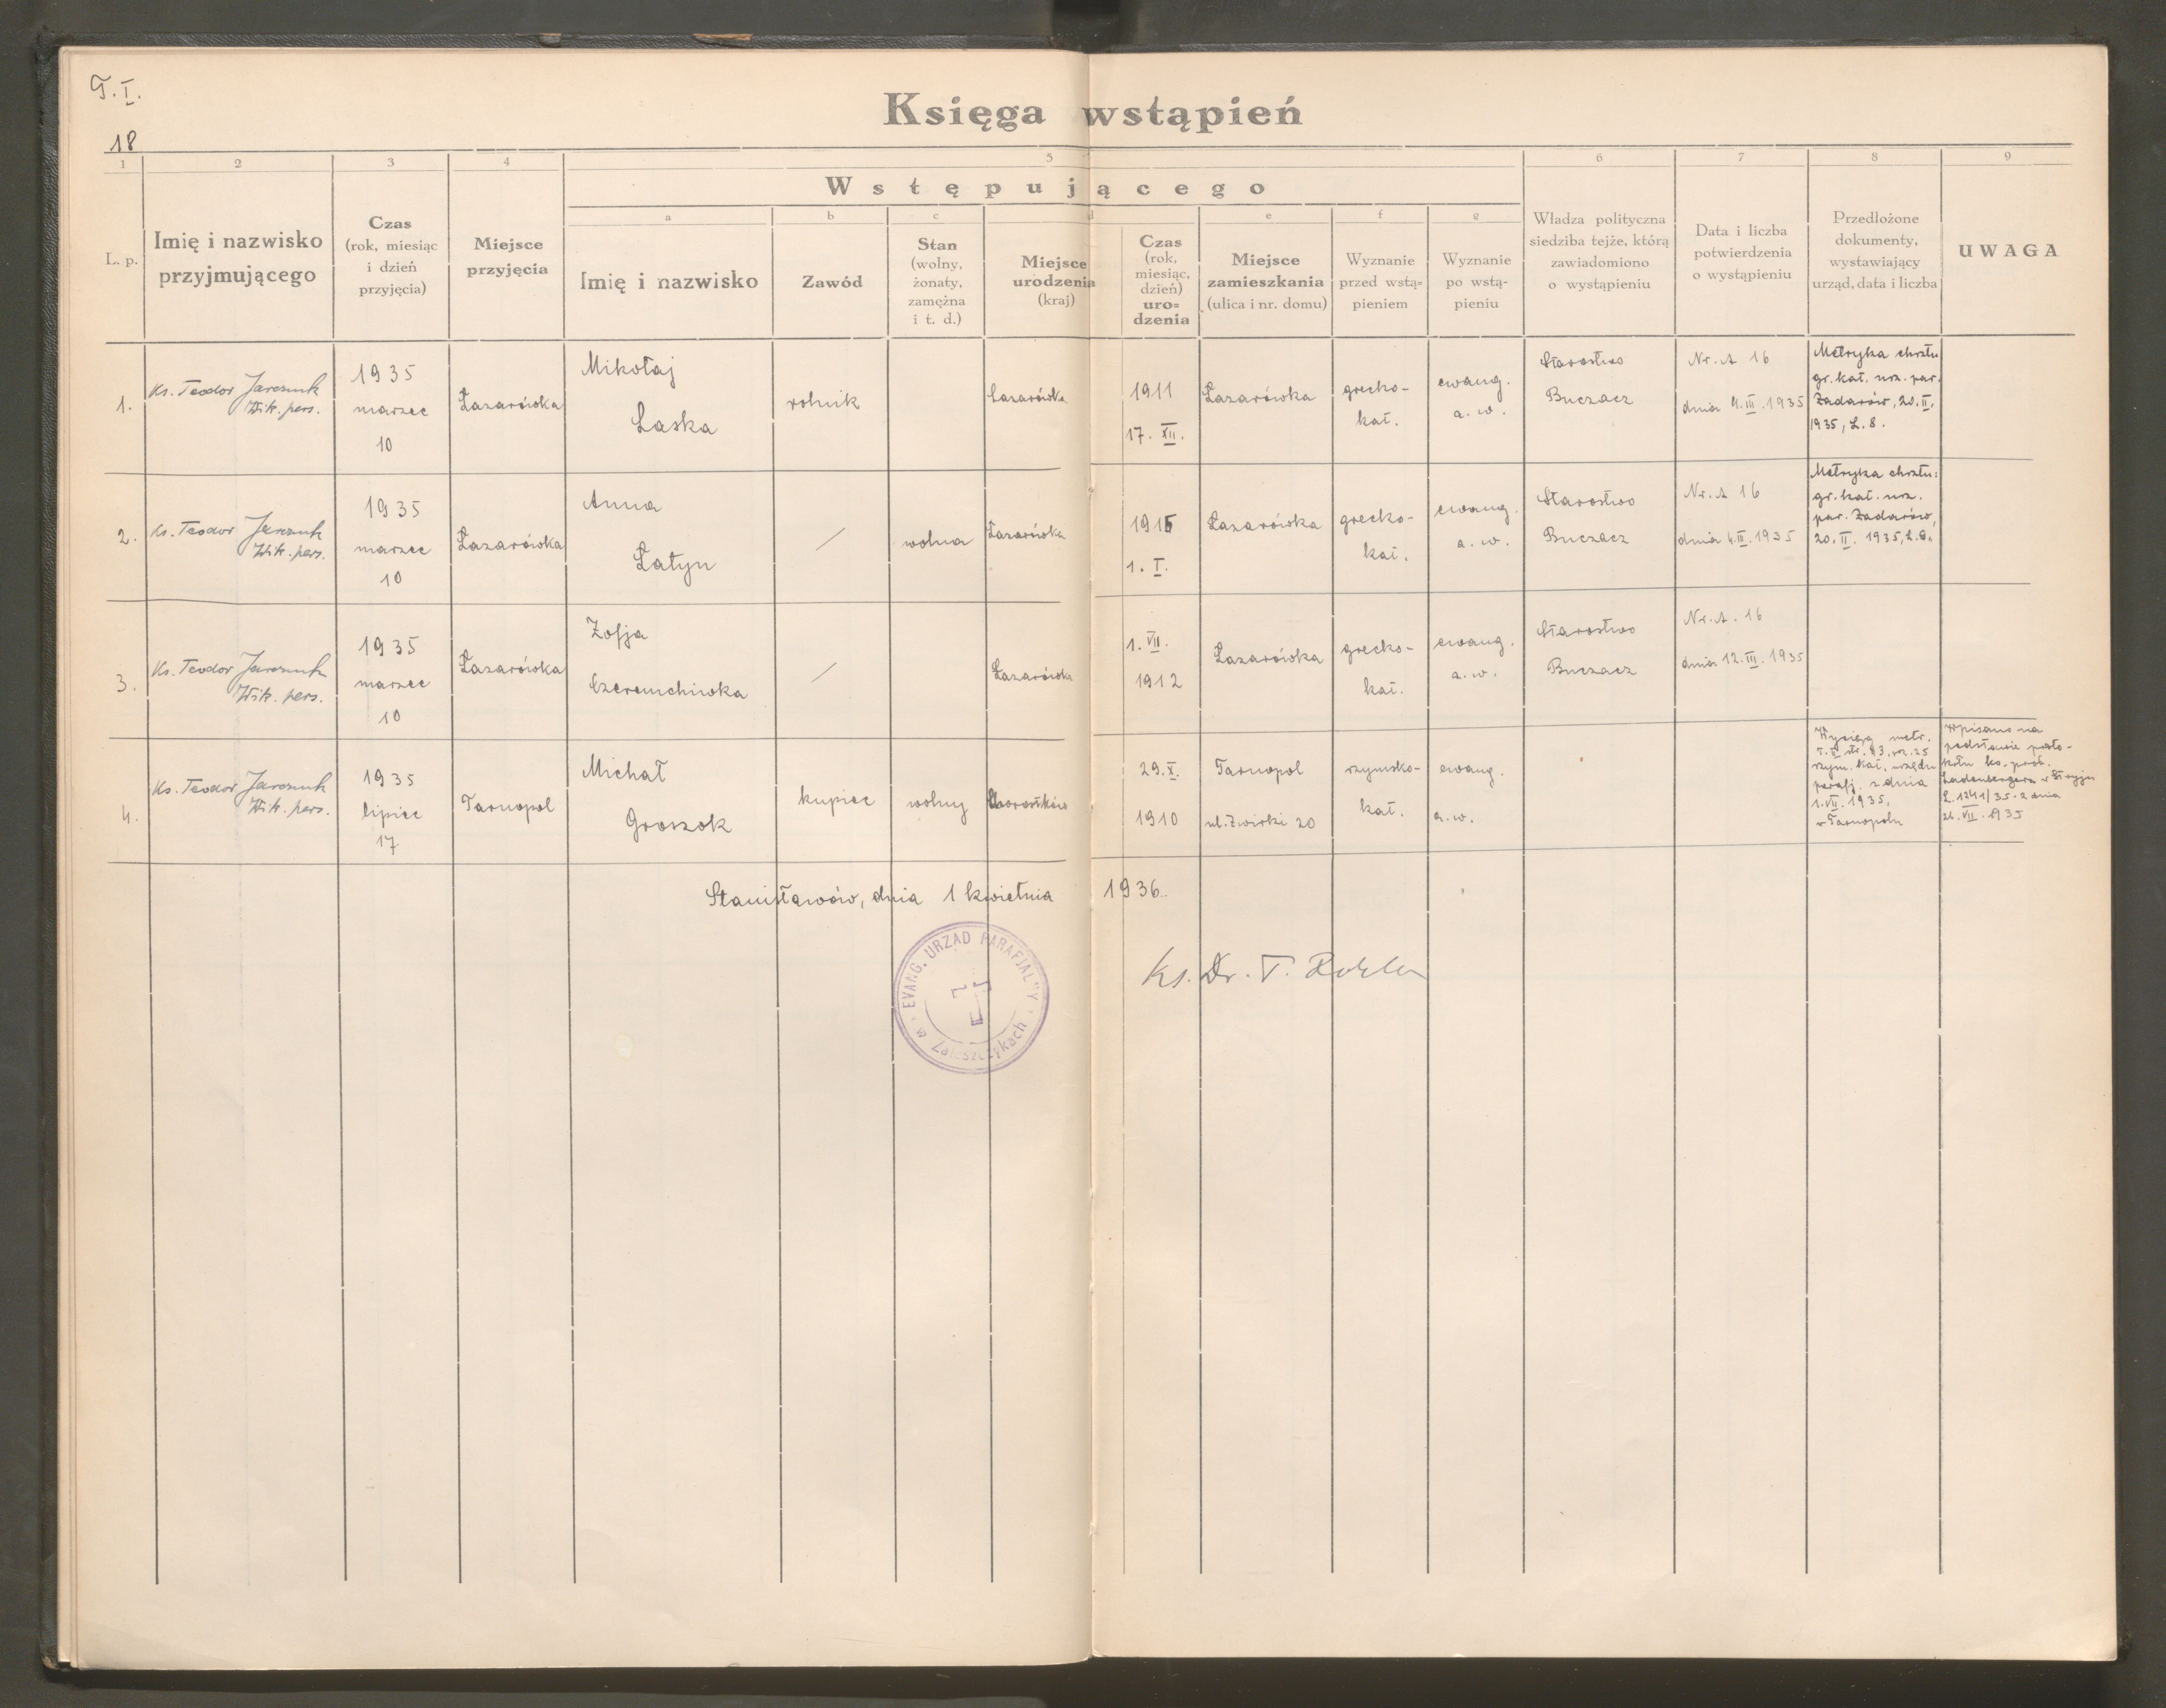 T. I.
18
Księga wstąpień
1 2 3 4 5 6 7 8 9
Wstępującego
a b c d e f g
L. p.
Imię i nazwisko
przyjmującego
Czas
(rok, miesiąc
i dzień
przyjęcia)
Miejsce
przyjęcia
Imię i nazwisko
Zawód
Stan
(wolny,
żonaty,
zamężna
i t. d.)
Miejsce
urodzenia
(kraj)
Czas
(rok,
miesiąc,
dzień)
uro=
dzenia
Miejsce
zamieszkania
(ulica i nr. domu)
Wyznanie
przed wstą=
pieniem
Wyznanie
po wstą-
pieniu
Władza polityczna
siedziba tejże, którą
zawiadomiono
o wystąpieniu
Data i liczba
potwierdzenia
o wystąpieniu
Przedłożone
dokumenty,
wystawiający
urząd, data i liczba
UWAGA
1.
Ks. Teodor Jarczuk
Wik. pers.
1935
marzec
10
Łazarówka
Mikołaj
Łaska
rolnik
Łazarówka
1911
17. XII.
Łazarówka
grecko-
kat.
ewang.
a. w.
Starostwo
Buczacz
Nr. A 16
dnia 4. III. 1935
Metryka chrztu
gr. kat. urz. par.
Zadarów, 20. II.
1935, L. 8.
2.
Ks. Teodor Jarczuk
Wik. pers.
1935
marzec
10
Łazarówka
Anna
Łatyn
/
wolna
Łazarówka
1915
1. I.
Łazarówka
grecko-
kat.
ewang.
a. w.
Starostwo
Buczacz
Nr. A 16
dnia 4. III. 1935
Metryka chrztu:
gr. kat. urz.
par. Zadarów,
20. II. 1935, L. 8.
3.
Ks. Teodor Jarczuk
Wik. pers.
1935
marzec
10
Łazarówka
Zofja
Czeremchiwka
/
Łazarówka
1. VII.
1912
Łazarówka
grecko-
kat.
ewang.
a. w.
Starostwo
Buczacz
Nr. A. 16
dnia 12. III. 1935
4.
Ks. Teodor Jarczuk
Wik. pers.
1935
lipiec
17
Tarnopol
Michał
Groszok
kupiec
wolny
Chorostków
29. X.
1910
Tarnopol
ul. Żwirki 20
rzymsko-
kat.
ewang.
a. w.
Wyciąg metr.
T. II str. 43, poz. 25
rzym. kat. urzędu
parafj. z dnia
1. VII. 1935,
w Tarnopolu
Wpisano na
podstawie proto-
kołu ks. prob.
Ladenbergera w Stryju
L. 1241/35 z dnia
26. VII. 1935
Stanisławów, dnia 1 kwietnia 1936.
EVANG. URZAD PARAFJALNY
w Zaleszczykach
Ks. Dr. T.